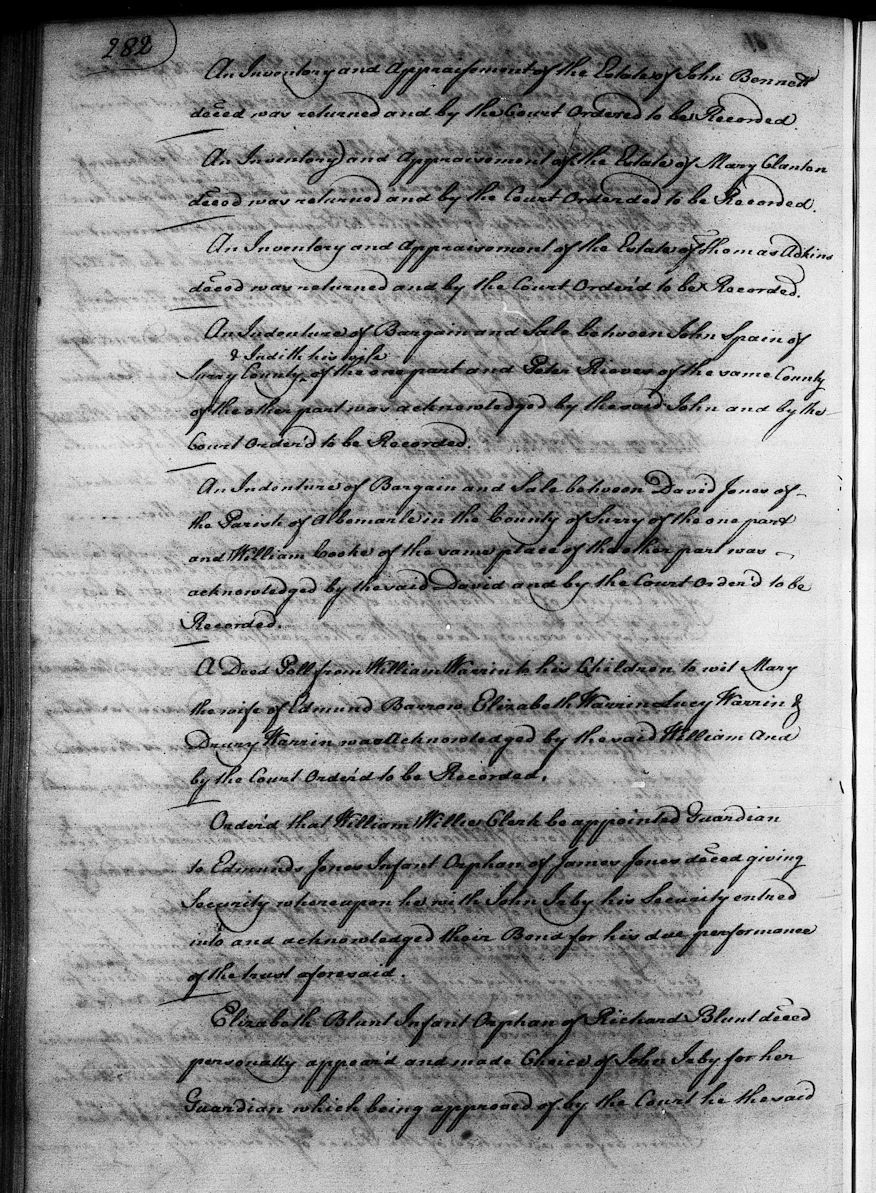 282
An Inventory and Appraisement of the Estate of John Bennett
deced was returned and by the Court Ordered to be Recorded.
An Inventory and Appraisement of the Estate of Mary Clanton
deced was returned and by the Court Order'd to be Recorded.
An Inventory and Appraisement of the Estate of Thomas Adkins
deced was returned and by the Court Order'd to be Recorded.
An Indenture of Bargain and Sale between John Spain of
& Judith his wife
Surry County ^ of the one part and Peter Rieves of the same County
of the other part was acknowledged by the said John and by the
Court Order'd to be Recorded.
An Indenture of Bargain and Sale between David Jones of
the Parish of Albemarle in the County of Surry of the one part
and William Cooke of the same place of the other part was
acknowledged by the said David and by the Court Order'd to be
Recorded.
A Deed Poll from William Warrin to his Children to wit Mary
the wife of Edmund Barrow, Elizabeth Warrin Lucy Warrin &
Drury Warrin was Acknowledged by the said William And
by the Court Order'd to be Recorded.
Order'd that William Willie Clerk be appointed Guardian
to Edmunds Jones Infant Orphan of James Jones deced giving
Security whereupon he with John Irby his Security entred
into and acknowledged their Bond for his due performance
of the trust aforesaid.
Elizabeth Blunt Infant Orphan of Richard Blunt deced
personally appear'd and made Choice of John Irby for her
Guardian which being approved of by the Court he the said